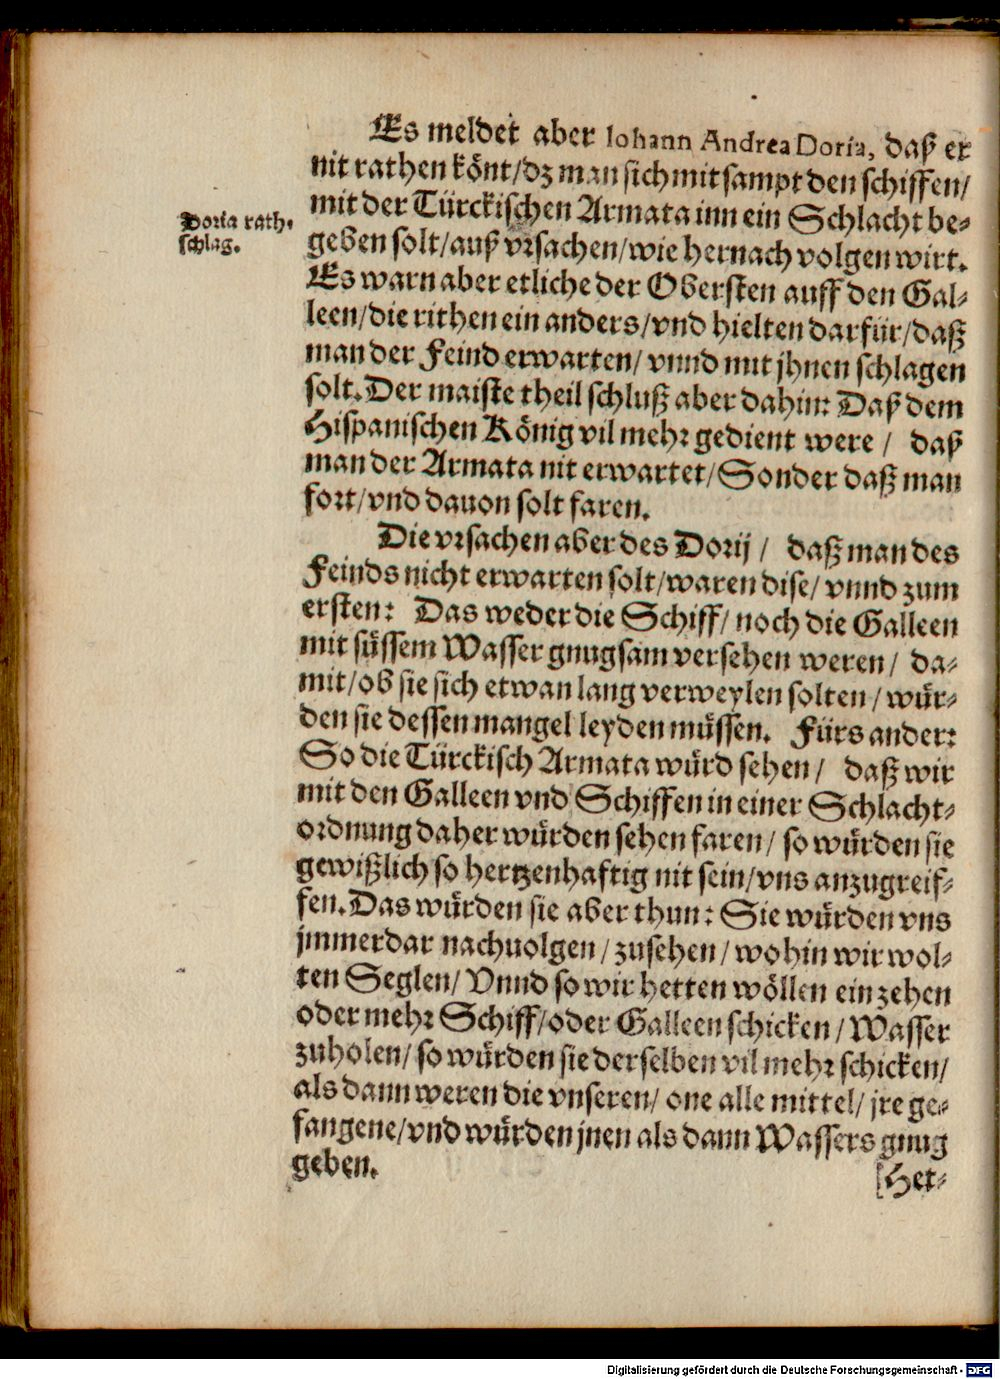 Es meldet aber Iohann Andrea Doria, daß er
nit rathen könt/dz man sich mitsampt den schiffen/
mit der Türckischen Armata inn ein Schlacht be-
Doria rath-
schlag.
geben solt/auß vrsachen/wie hernach volgen wirt.
Es warn aber etliche der Obersten auff den Gal-
leen/die rithen ein anders/vnd hielten darfür/daß
man der Feind erwarten/vnnd mit jhnen schlagen
solt. Der maiste theil schluß aber dahin: Daß dem
Hispanischen König vil mehr gedient were / daß
man der Armata nit erwartet/Sonder daß man
fort/vnd dauon solt faren.
Die vrsachen aber des Dorij / daß man des
Feinds nicht erwarten solt/waren dise/vnnd zum
ersten: Das weder die Schiff/noch die Galleen
mit süssem Wasser gnugsam versehen weren/ da-
mit/ob sie sich etwan lang verweylen solten/wür-
den sie dessen mangel leyden müssen. Fürs ander:
So die Türckisch Armata würd sehen / daß wir
mit den Galleen vnd Schiffen in einer Schlacht-
ordnung daher würden sehen faren/ so würden sie
gewißlich so hertzenhafftig nit sein/vns anzugreif-
fen. Das würden sie aber thun: Sie würden vns
jmmerdar nachuolgen/zusehen/wohin wir wol-
ten Seglen/Vnnd so wir hetten wöllen ein zehen
oder mehr Schiff/oder Galleen schicken/Wasser
zuholen/so würden sie derselben vil mehr schicken/
als dann weren die vnseren/ one alle mittel/jre ge-
fangene/vnd würden jnen als dann Wassers gnug
geben.
[Het-
Digitalisierung gefördert durch die Deutsche Forschungsgemeinschaft - DFG